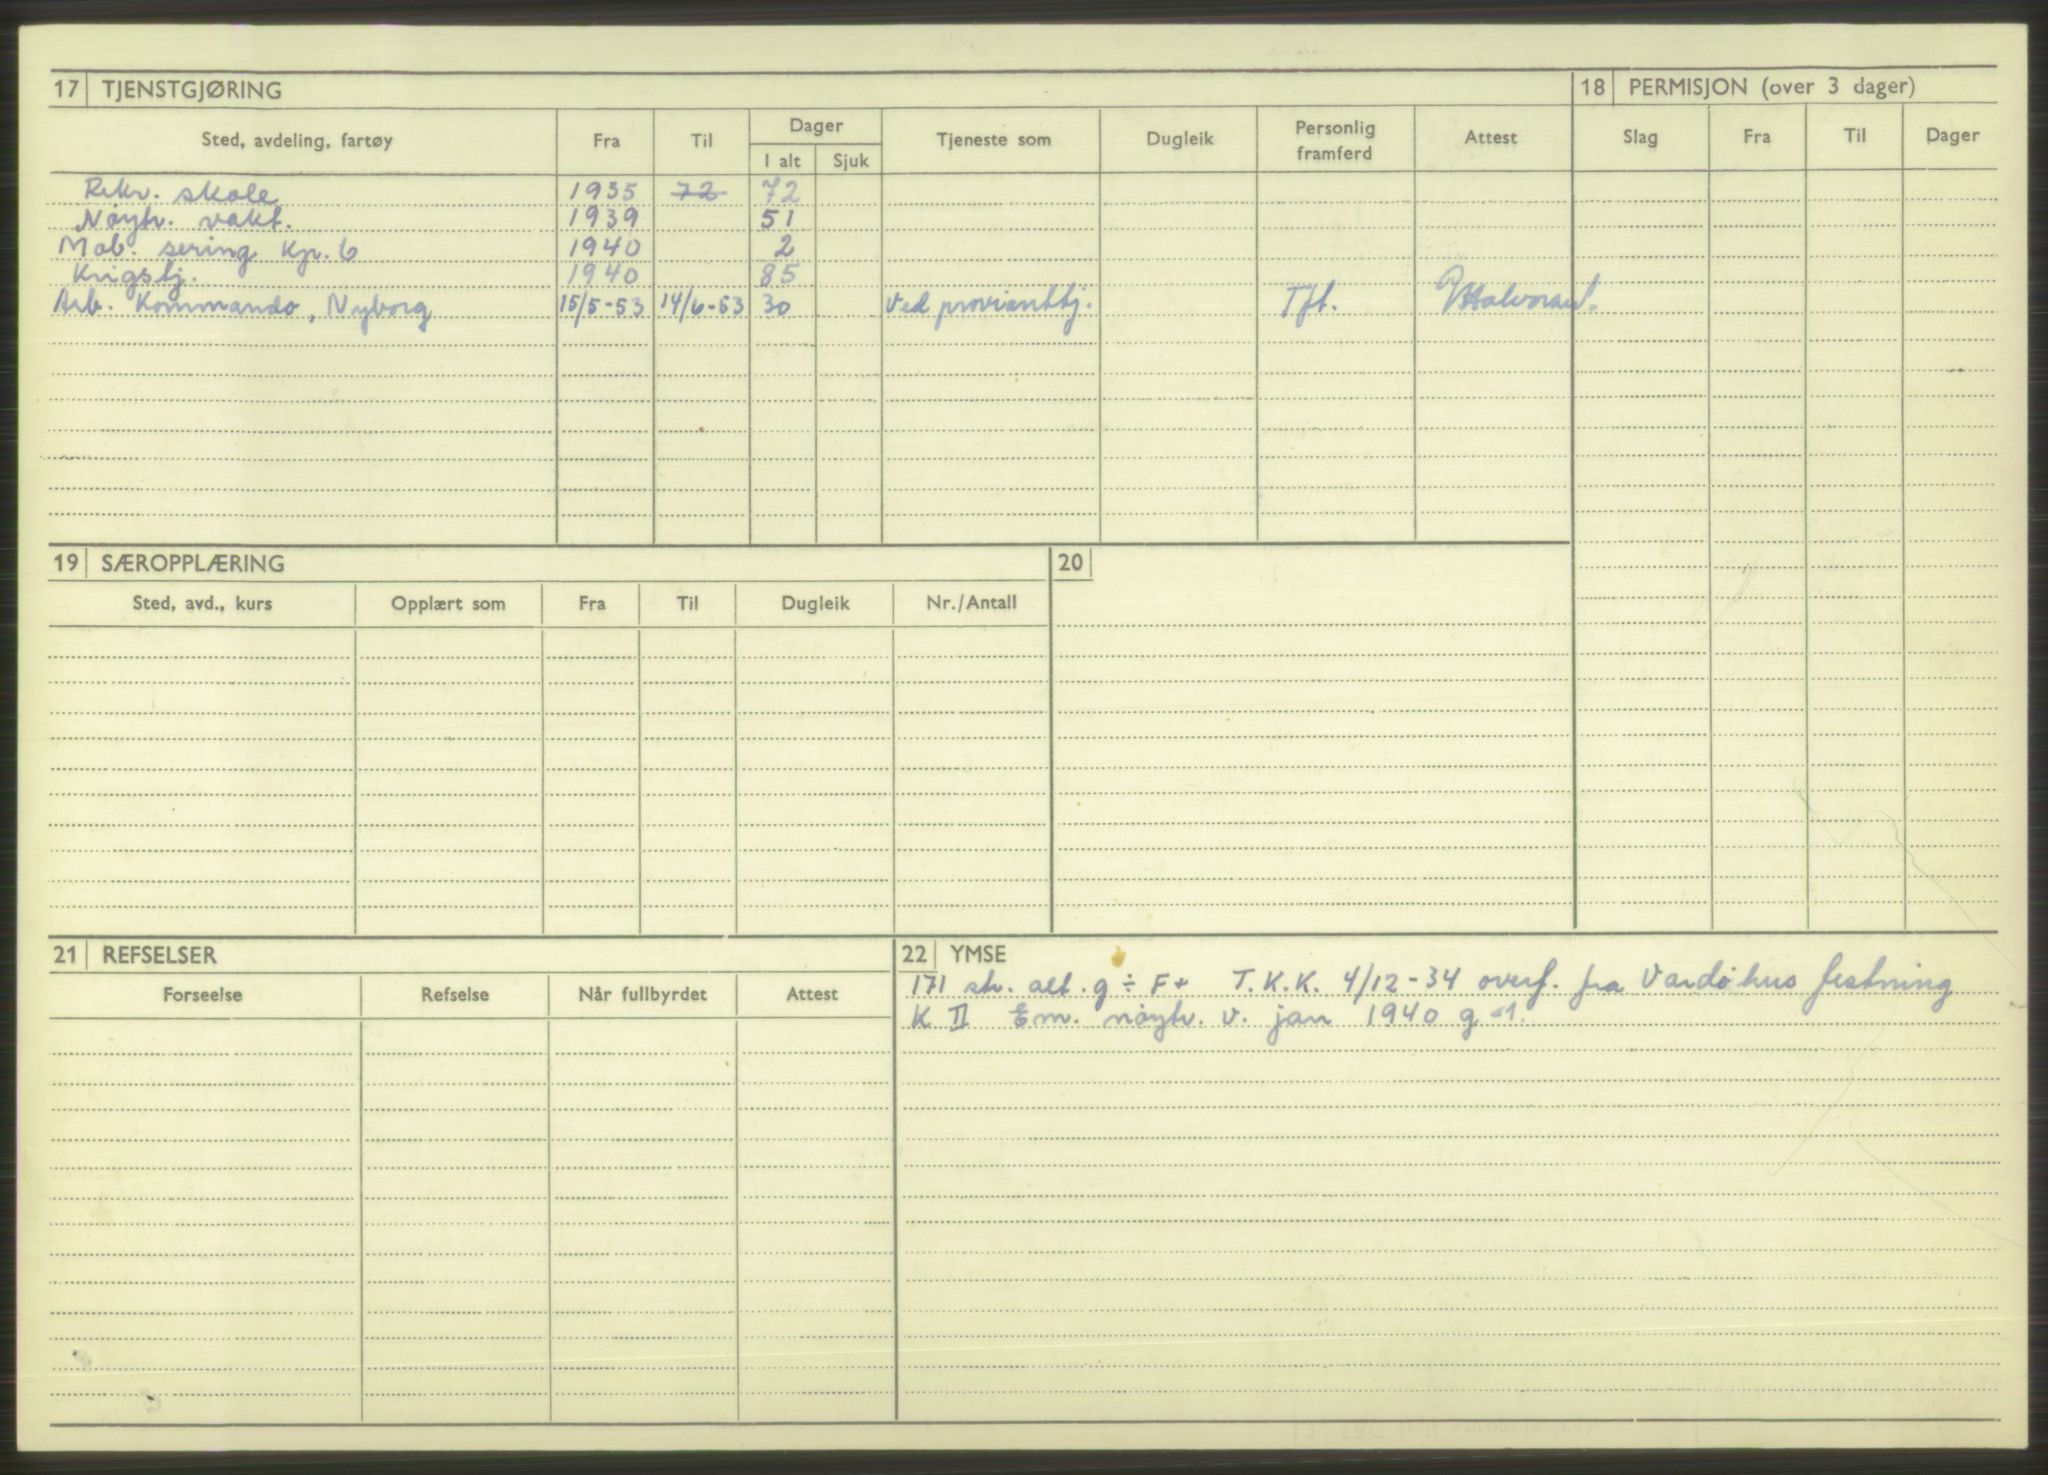 17 TJENSTGJØRING
18 PERMISJON (over 3 dager)
Sted, avdeling, fartøy Fra Til Dager Tjeneste som Dugleik Personlig framferd Attest Slag Fra Til Dager
I alt Sjuk
Rekr. skole 1935 72 72
Nøytr. vakt. 1939 51
Mob. sering Kpr. 6 1940 2
Krigstj. 1940 85
Arb. Kommando, Nyborg 15/5-53 14/6-53 30 Ved provianttj. Tft.
19 SÆROPPLÆRING
20
Sted, avd., kurs Opplært som Fra Til Dugleik Nr./Antall
21 REFSELSER
22 YMSE
Forseelse Refselse Når fullbyrdet Attest
171 str. alt. g ÷ F+ T.K.K. 4/12-34 overf. fra Vardøhus festning
K II Em. nøytr. v. jan 1940 g